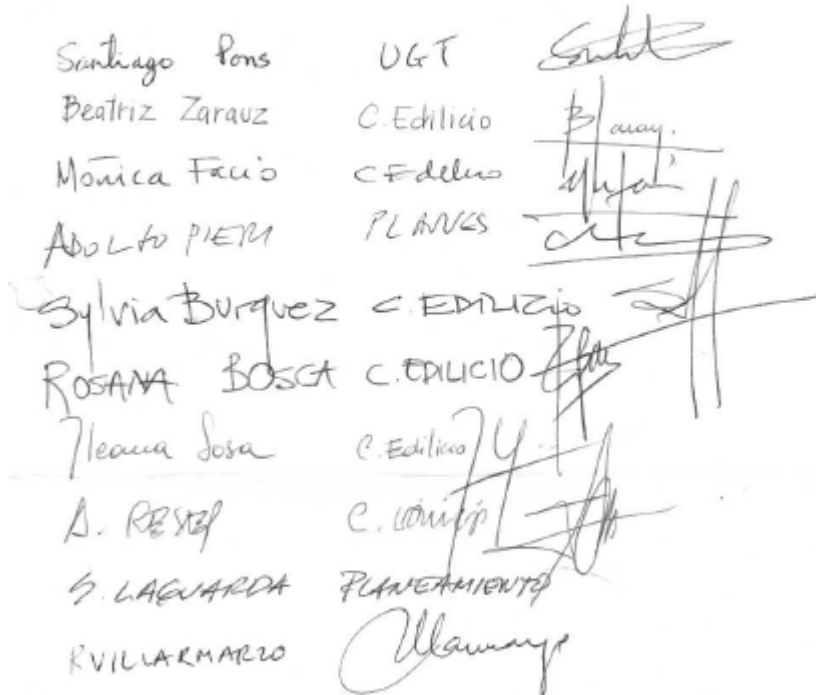 Santiago Pons UGT
Beatriz Zarauz C. Edilicio
Mónica Facio C Edilicio
ADOLFO PIERI PLANES
Sylvia BURQUEZ C. EDILIZIO
ROSANA BOSCA C. EDILICIO
Ileana Sosa C. Edilicio
A. C.
S. LAGUARDA PLANEAMIENTO
R VILLARMARZO